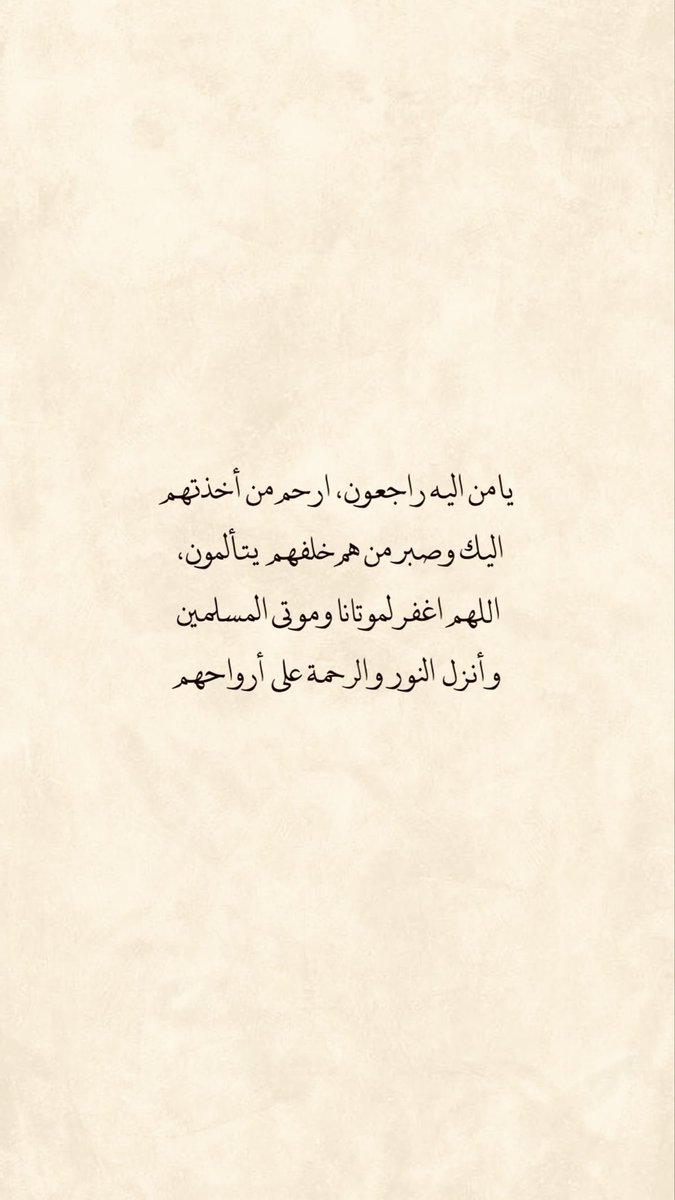 يامن اليه راجعون، ارحم من أخذتهم
اليك وصبر من هم خلفهم يتألمون،
اللهم اغفر لموتانا وموتى المسلمين
وأنزل النور والرحمة على أرواحهم